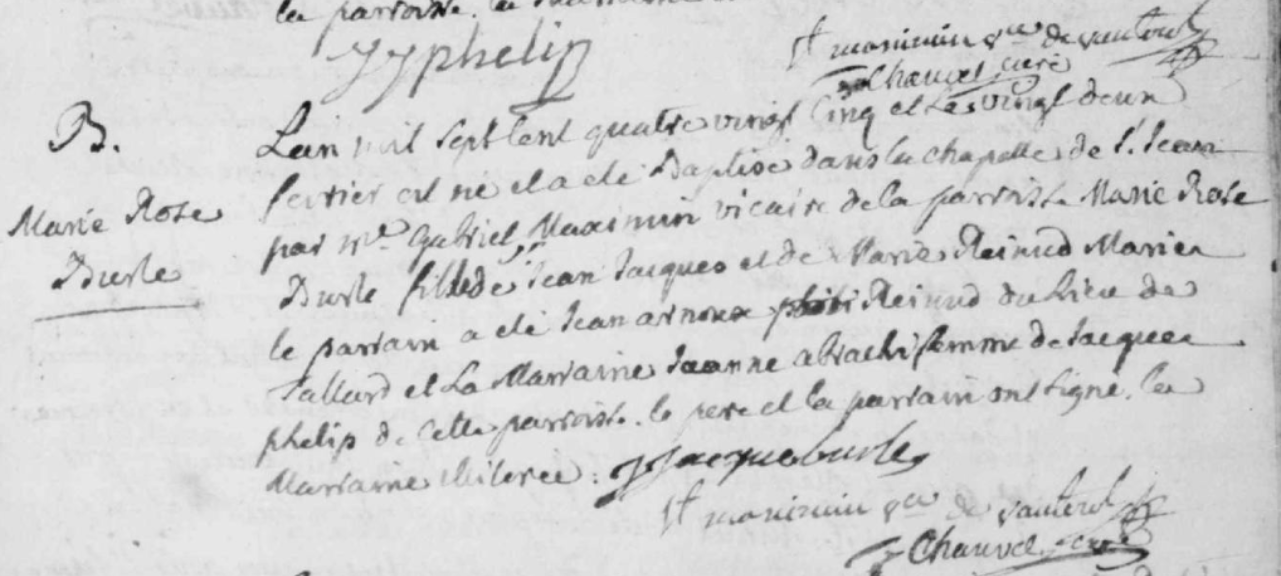 la parroisse. la
JJphelip
St maximin de vauterol
Chauvel curé
B.
Marie Rose
Burle
Lan mil Sept Cent quatre vingt Cinq et Les vingt deux
fevrier est né et a été Baptisé dans la chapelle de St. Jean
par mre. Gabriel Maximin vicaire de la parroisse Marie Rose
Burle fille de Jean Jacques et de Marie Reinud Mariés
le parrain a été Jean arnoux Reinud du Lieu de
Tallard et La Marraine Jeanne femme de Jacques
phelip de Cette parroisse. le pere et la parrain ont signé. la
Marraine illiteree : JJacqueburle
St maximin de vauterol
Chauvel curé